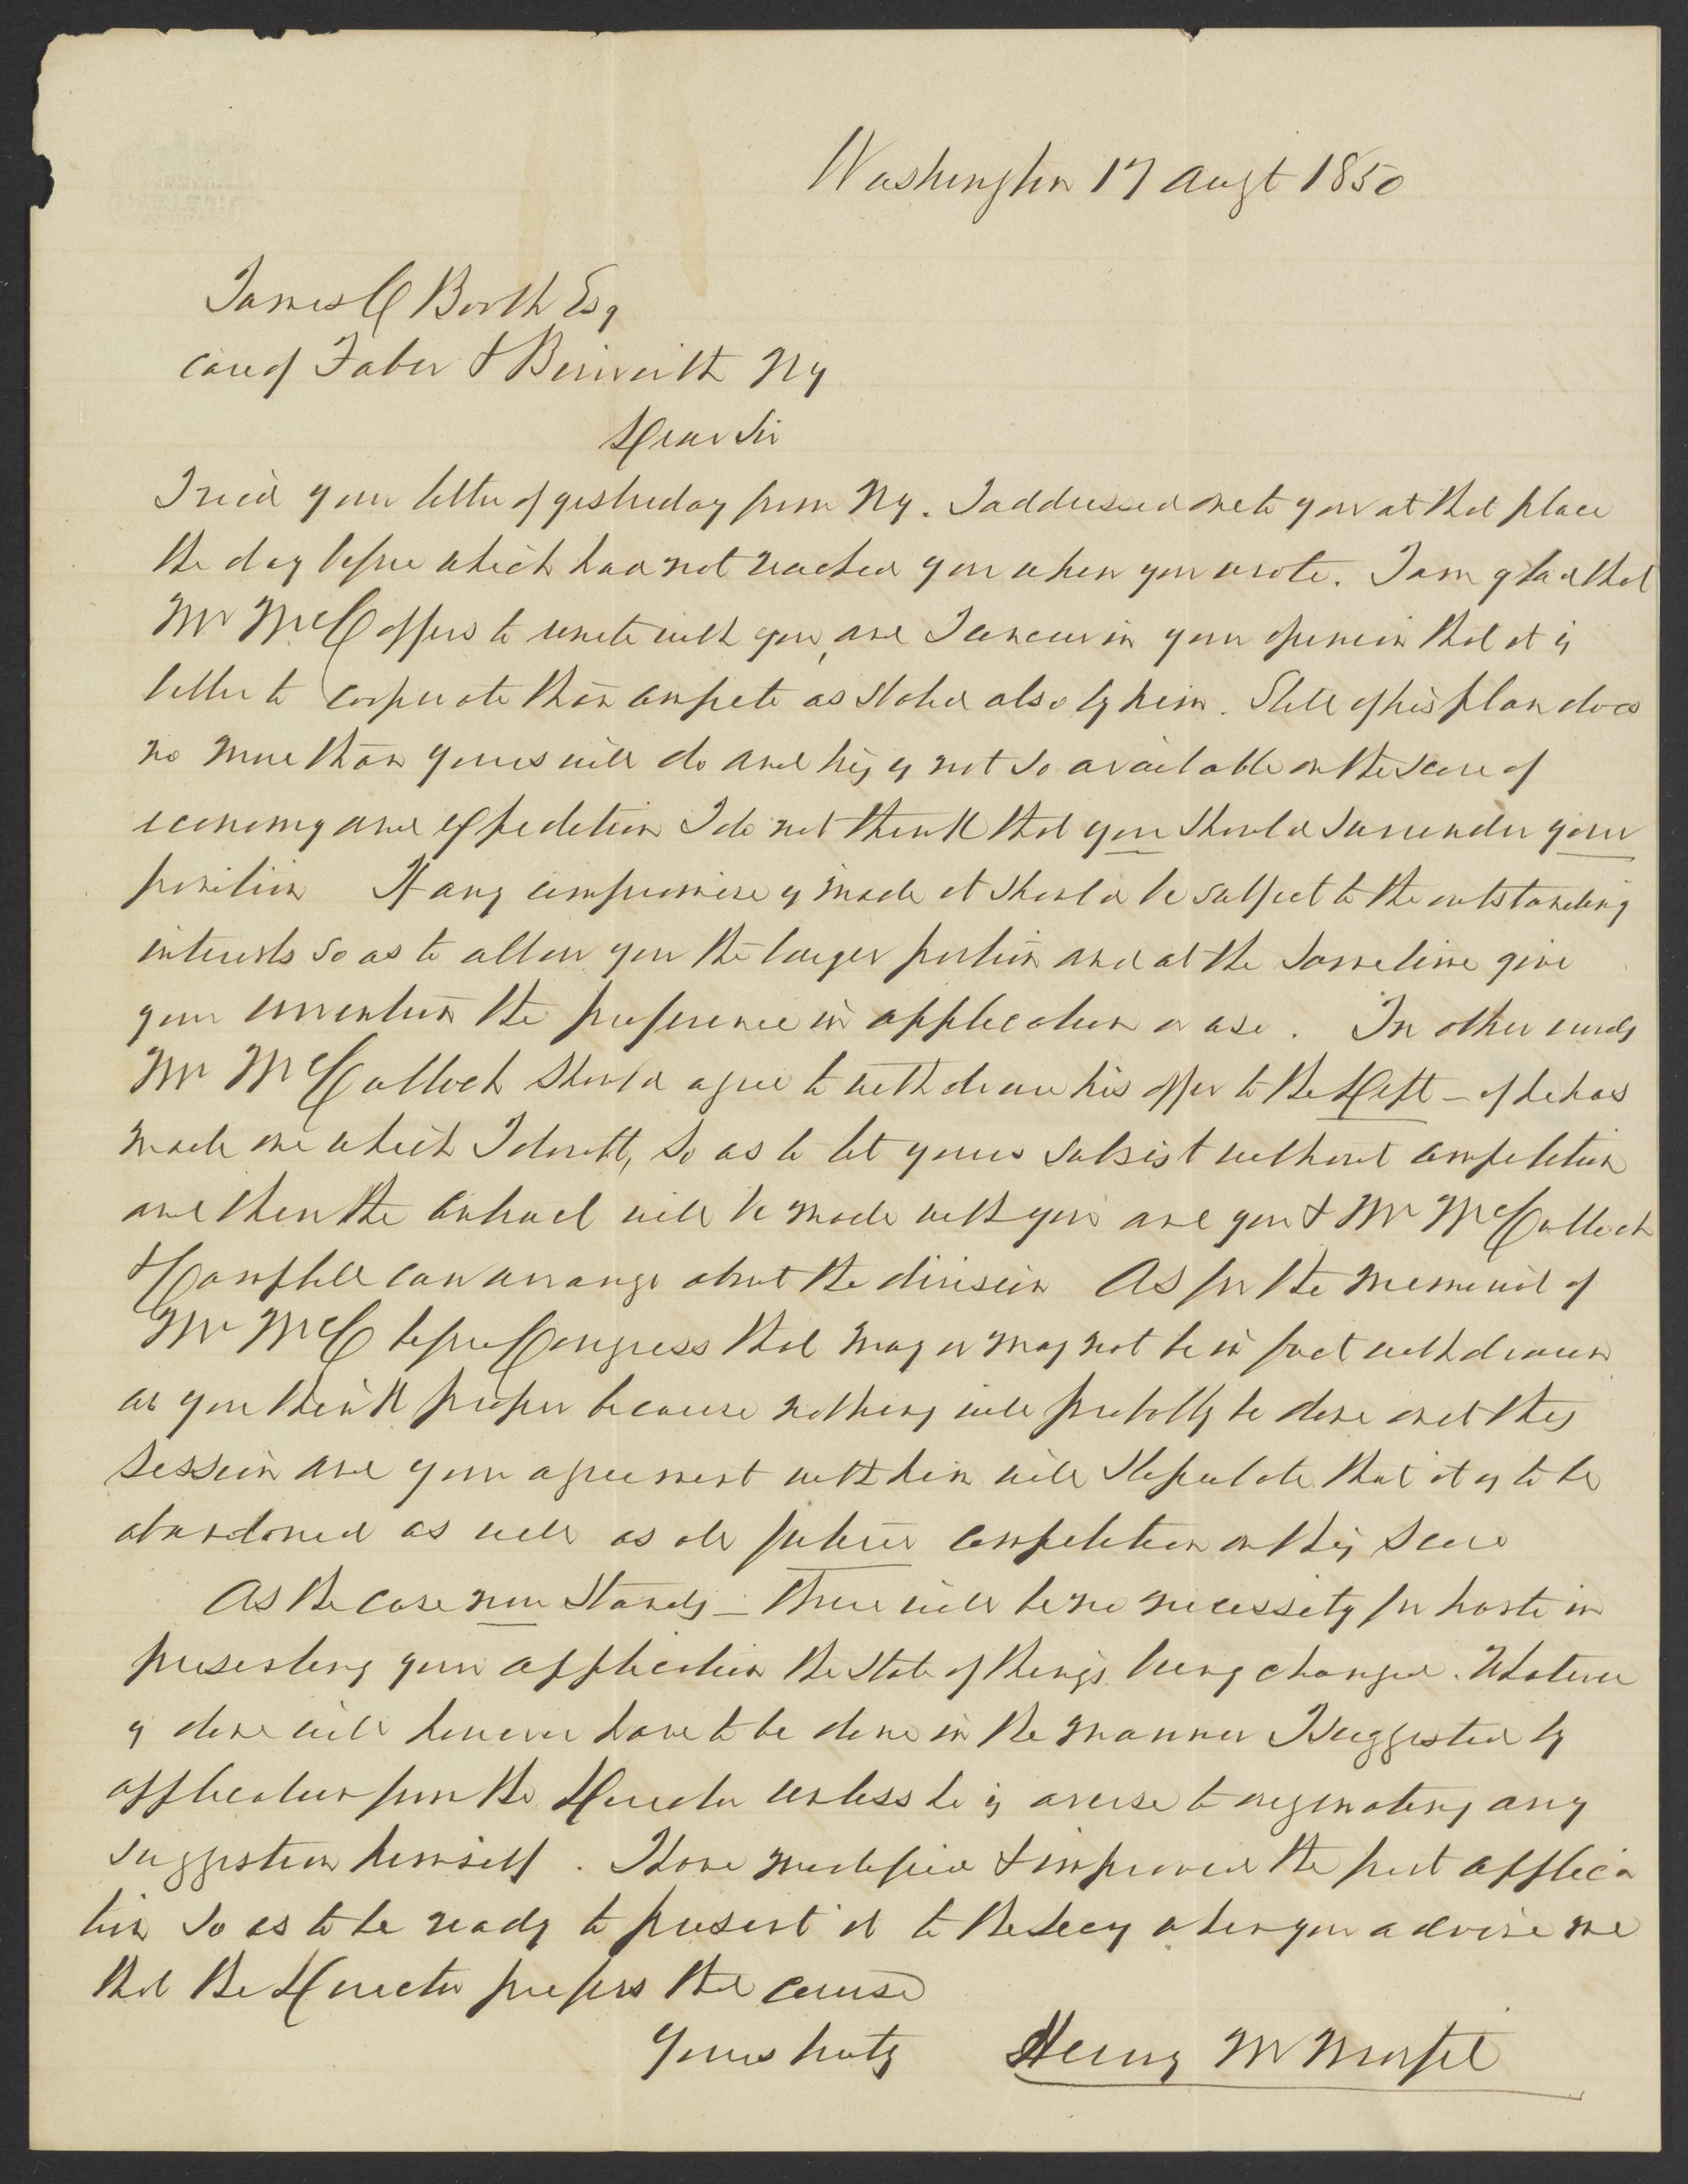 Washington 17 Augt 1850
James C Booth Esq
care of Faber & Bierwirth NY
Dear Sir
I recd your letter of yesterday from NY. I addressed one to you at that place
the day before which had not reached you when you wrote. I am glad that
Mr McC offers to unite with you, and I concur in your opinion that it is
better to cooperate than compete as stated also by him. Still if his plan does
no more than yours will do and his is not so available on the score of
economy and expedition I do not think that you should surrender your
position If any compromise is made it should be subject to the outstanding
interests so as to allow you the larger portion and at the same time give
your invention the preference in application or use. In other words
Mr McCulloch should agree to withdraw his offer to the Dept - if he has
made one which I doubt, so as to let yours subsist without competition
and then the contract will be made with you and you & Mr McCulloch
& Campbell can arrange about the division As for the memorial of
Mr McC before Congress that may or may not be in fact withdrawn
as you think proper because nothing will probably be done on it this
session and your agreement with him will stipulate that it is to be
abandoned as well as all future competition on this score
As the case now stands - there will be no necessity for haste in
presenting your application the state of things being changed. Whatever
is done will however have to be done in the manner I suggested by
application from the Director unless he is averse to originating any
suggestion himself. I have modified & improved the first applica
tion so as to be ready to present it to the Secy when you advise me
that the Director prefers that course
Yours truly Henry M